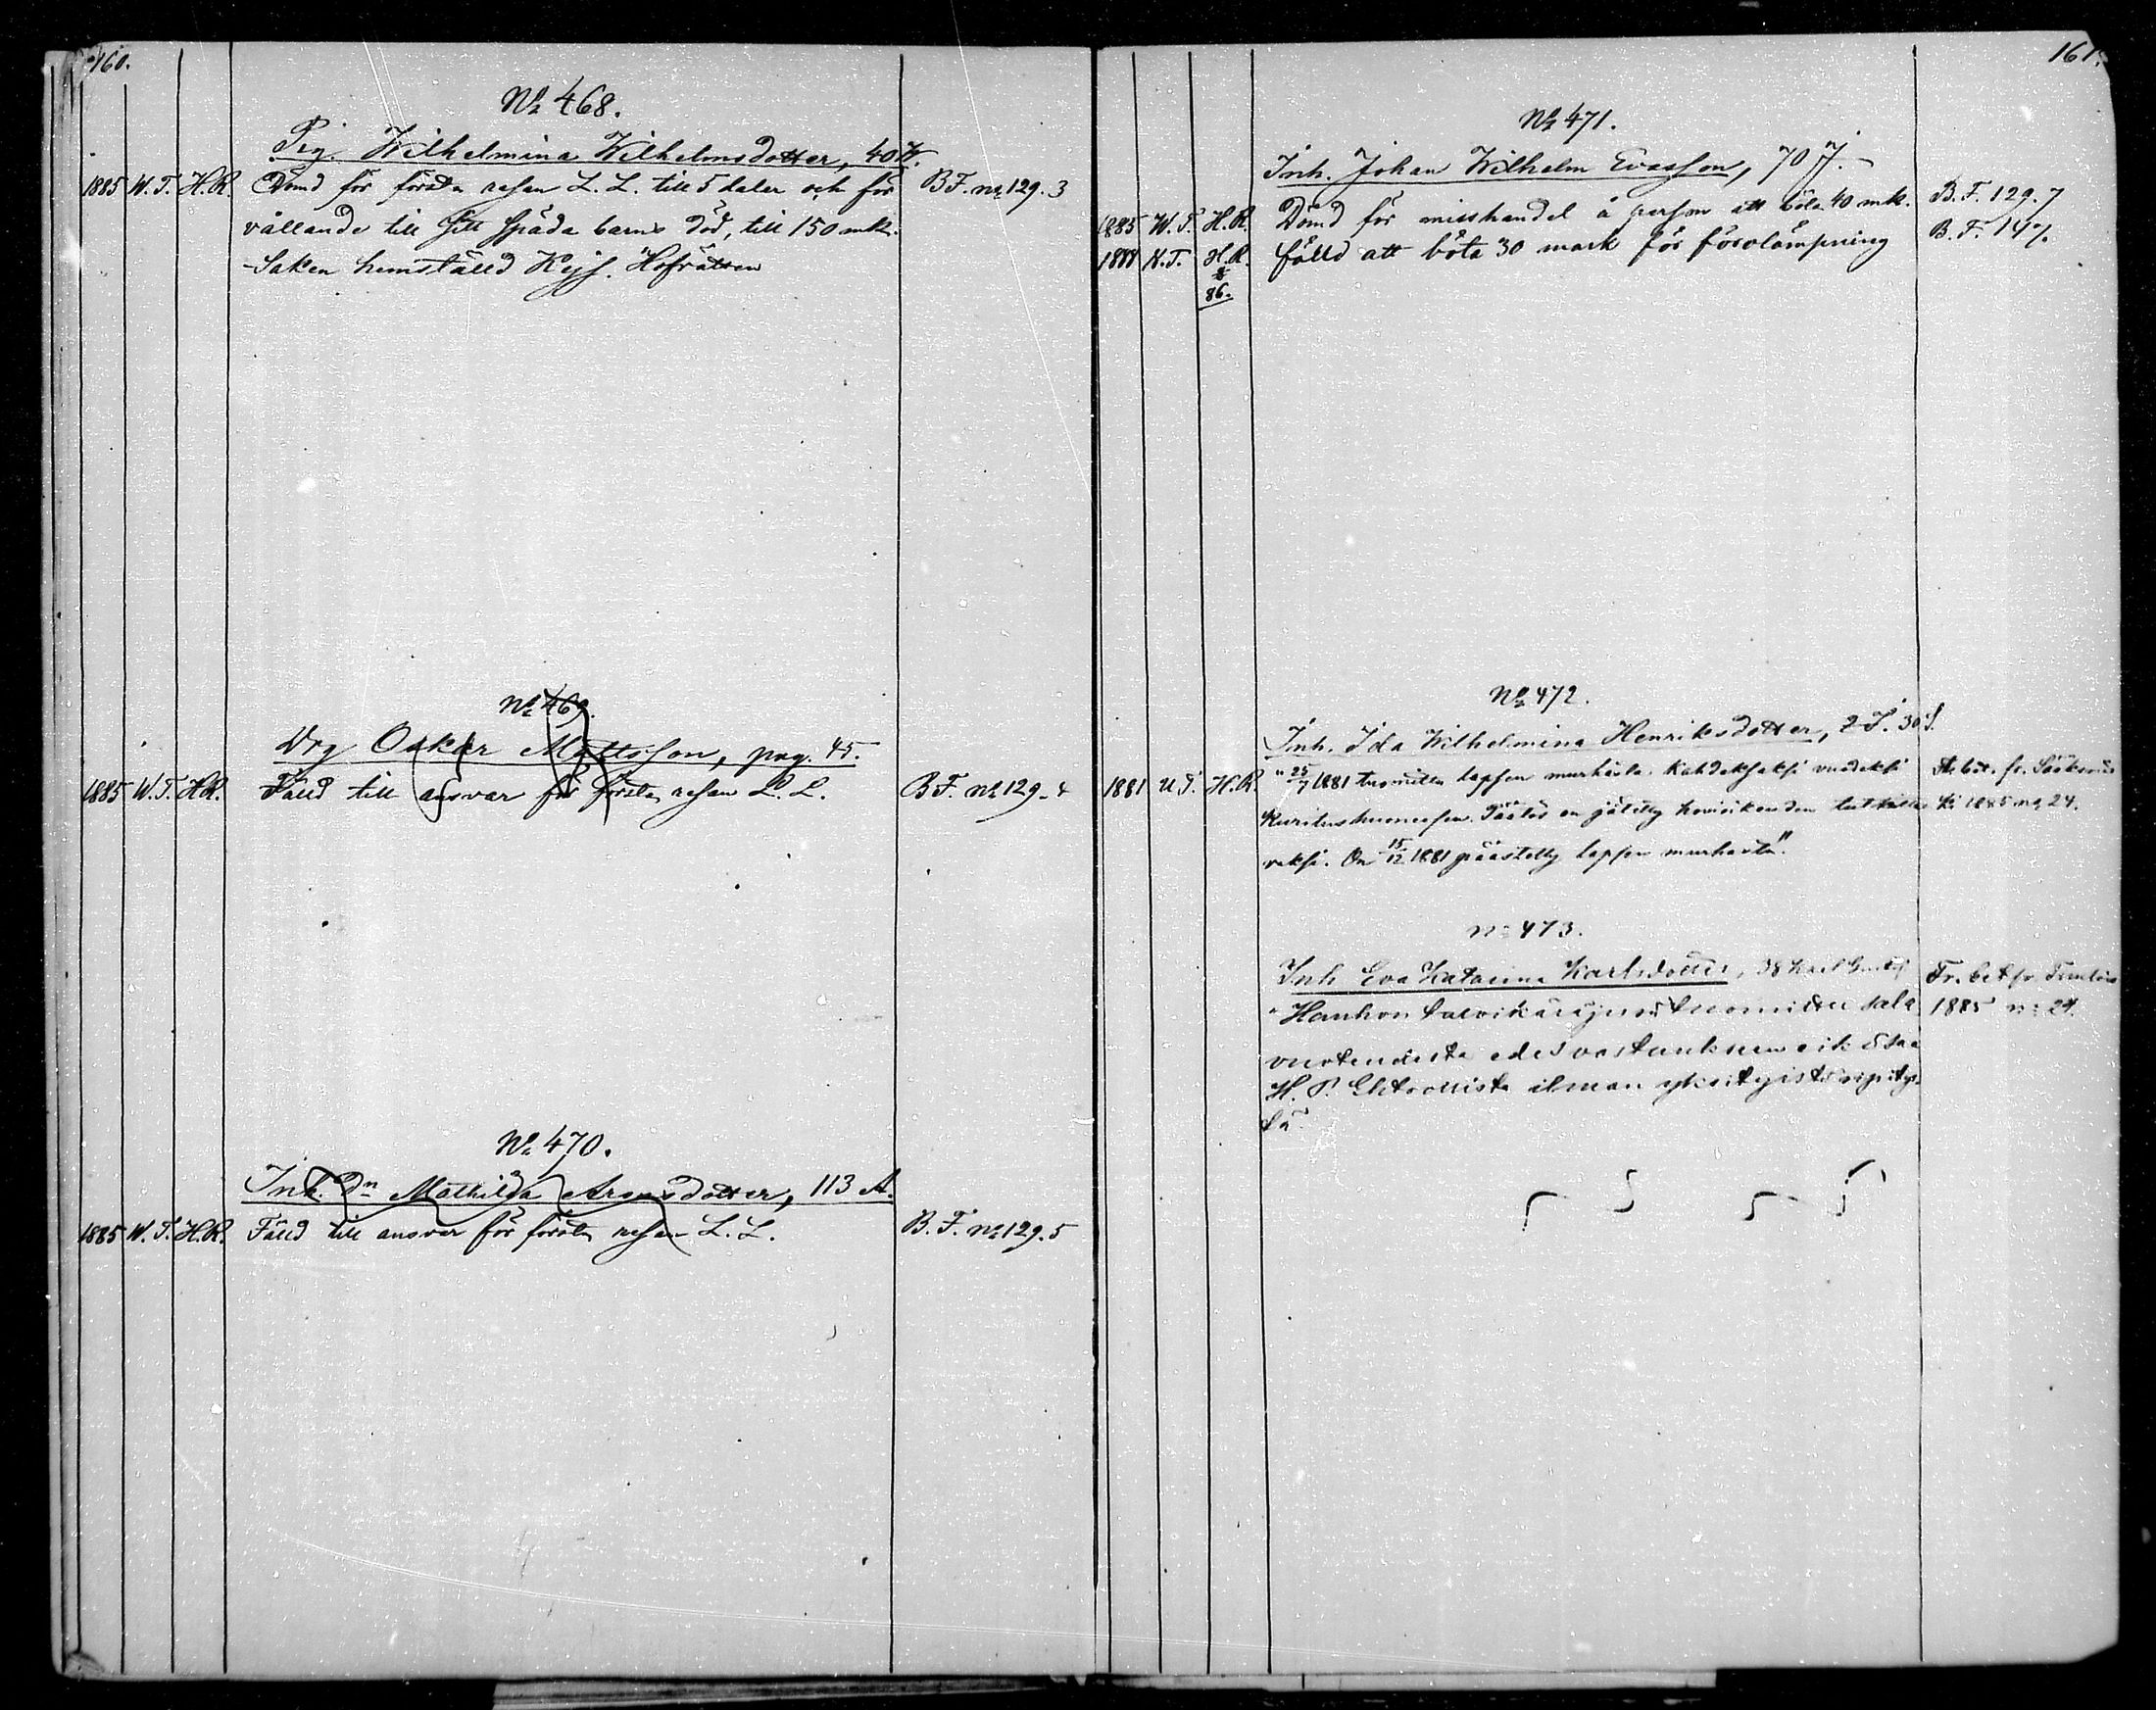 160.
No 468.
Pig. Wilhelmina Wilhelmsdotter, 40 W.
1885 W. T. H.R. Dömd för första resan L. L. till 5 daler och för B.F. no 129.3
vållande till sitt späda barns död, till 150 mk.
Saken hemställd Kejs. Hofrätten
No 469.
Drg Oskar Mattsson, pag. 45.
1885 W. T. H.R. Fälld till ansvar för första resan L. L. B.F. no 129.4
No 470.
Inh. dn Mathilda Aronsdotter, 113 A.
1885 W. T. H.R. Fälld till ansvar för första resan L. L. B. F. no 129.5
161.
No 471.
Inh. Johan Wilhelm Evasson, 70 J.
1885 W. T. H.R. Dömd för misshandel å person att böta 40 mk. B. F. 129.7
1888 H. T. H.R. fälld att böta 30 mark för förolämpning B. F. 147.
§
86.
No 472.
Inh. Ida Wilhelmina Henriksdotter, 2 I. 30 I.
1881 U. T. H.R. "25/7 1881 tuomittu lapsen murhasta kahdeksaksi vuodeksi fr. Sääksmä
Kuritushuoneesen. Päätös on jätetty hovioikeuden ki 1885 no 24.
vaksi. On 15/12 1881 päästetty lapsen murhasta".
No 473.
Inh Eva Katarina Karlsdotter, 38 Karl Gustaf Fr. bet fr.
"Hauhon talvikäräjissä tuomittu sala 1885 no 24.
vuoteudesta edesvastaukseen eik ä saa
H. P. Ehtoollista ilman yksityistä ripitys
tä"